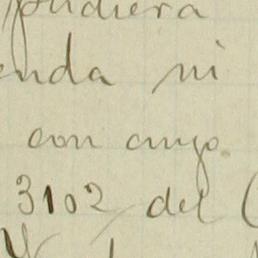 pudiera
enda ni
con cuyo.
3102 del (